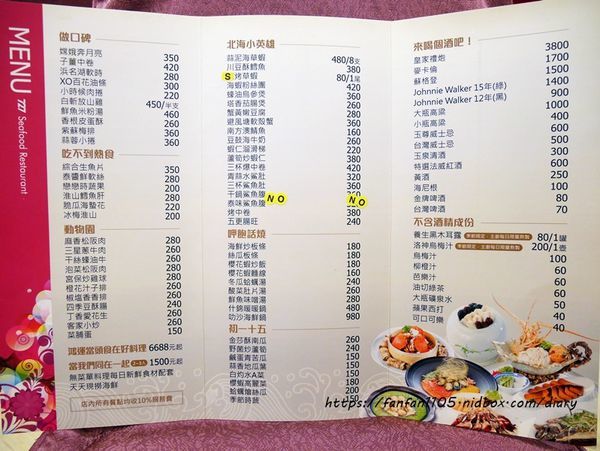 MENU 727 Seafood Restaurant
做口碑
嫦娥奔月亮 350
子薑中卷 420
浜名湖軟時 280
XO百花油條 300
小時候肉捲 220
白斬放山雞 450/半支
鮮魚米粉湯 460
香根皮蛋酥 260
紫蘇梅排 360
蒜蓉小捲 360
吃不到熟食
綜合生魚片 350
泰醬鮮軟絲 280
戀戀時蔬果 200
淮山鱈魚肝 280
脆瓜海蜇花 220
冰梅淮山 200
動物園
麻香松阪肉 280
三星蔥牛肉 260
干絲蜂油牛 260
泡菜松阪肉 280
宮保炒雞球 280
橙花汁子排 260
椒塩香香排 260
四季豆酥腸 240
丁香愛花生 260
客家小炒 260
菜脯蛋 150
鴻運當頭食在好料理 6688元起
當我們同在一起 1500元起
無菜單料理每日新鮮食材配套
天天現撈海鮮
店內所有餐點均收10%服務費
北海小英雄
蒜泥海草蝦 480/8支
川豆酥鱈魚 380
S 烤草蝦 80/1尾
海蝦粉絲團 420
蠔油烏參煲 360
塔香茄腸煲 260
蟹黃燜豆腐 260
避風塘軟殼蟹 360
南方澳鯖魚 160
豆鼓海牛奶 260
蝦仁溜滑梯 220
蘆筍炒蝦仁 380
三杯爆中卷 420
青蒜水鯊魚 320
三杯鯊魚肚 320
干鍋鯊魚腹 NO 360 NO
泰味鯊魚腹
烤中卷 380
五更腸旺 240
呷飽話燒
海鮮炒板條 180
絲瓜板條 180
櫻花蝦炒飯 180
櫻花蝦麵線 160
冬瓜蛤蠣湯 250
酸菜肚片湯 250
鮮魚味噌湯 280
什錦暖暖鍋 480
叻沙海鮮鍋 980
初一十五
金莎酥南瓜 260
野菌炒蘆筍 260
鹹蛋青苦瓜 150
蒜香地瓜葉 150
白灼水A菜 150
櫻蝦高麗菜 180
蛤蠣燴絲瓜 200
季節時蔬 150
來喝個酒吧！ 3800
皇家禮炮 1700
麥卡倫 1500
蘇格登 1400
Johnnie Walker 15年(綠) 1400
Johnnie Walker 12年(黑) 1000
大瓶高粱 400
小瓶高粱 350
玉尊威士忌 300
台灣威士忌 300
玉泉清酒 300
特選法威紅酒 250
黃酒 100
海尼根 80
金牌啤酒 70
台灣啤酒
不含酒精成份
養生黑木耳露 80/1罐
洛神烏梅汁 200/1壺
烏梅汁 100
柳橙汁 60
芭樂汁 60
油切綠茶 60
大瓶礦泉水 50
蘋果西打 40
可口可樂 40
https://fanfan1105.nidbox.com/diary